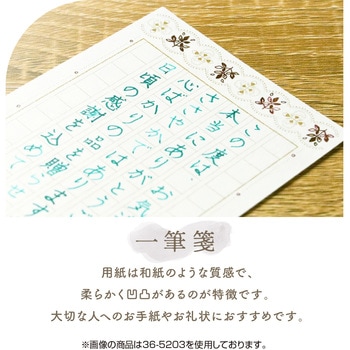 この度は お気
本当にありがとう
ささやかではあります
心ばかりの品を贈
日頃の感謝を込めて
一筆箋
用紙は和紙のような質感で、
柔らかく凹凸があるのが特徴です。
大切な人へのお手紙やお礼状におすすめです。
※画像の商品は36-5203を使用しております。